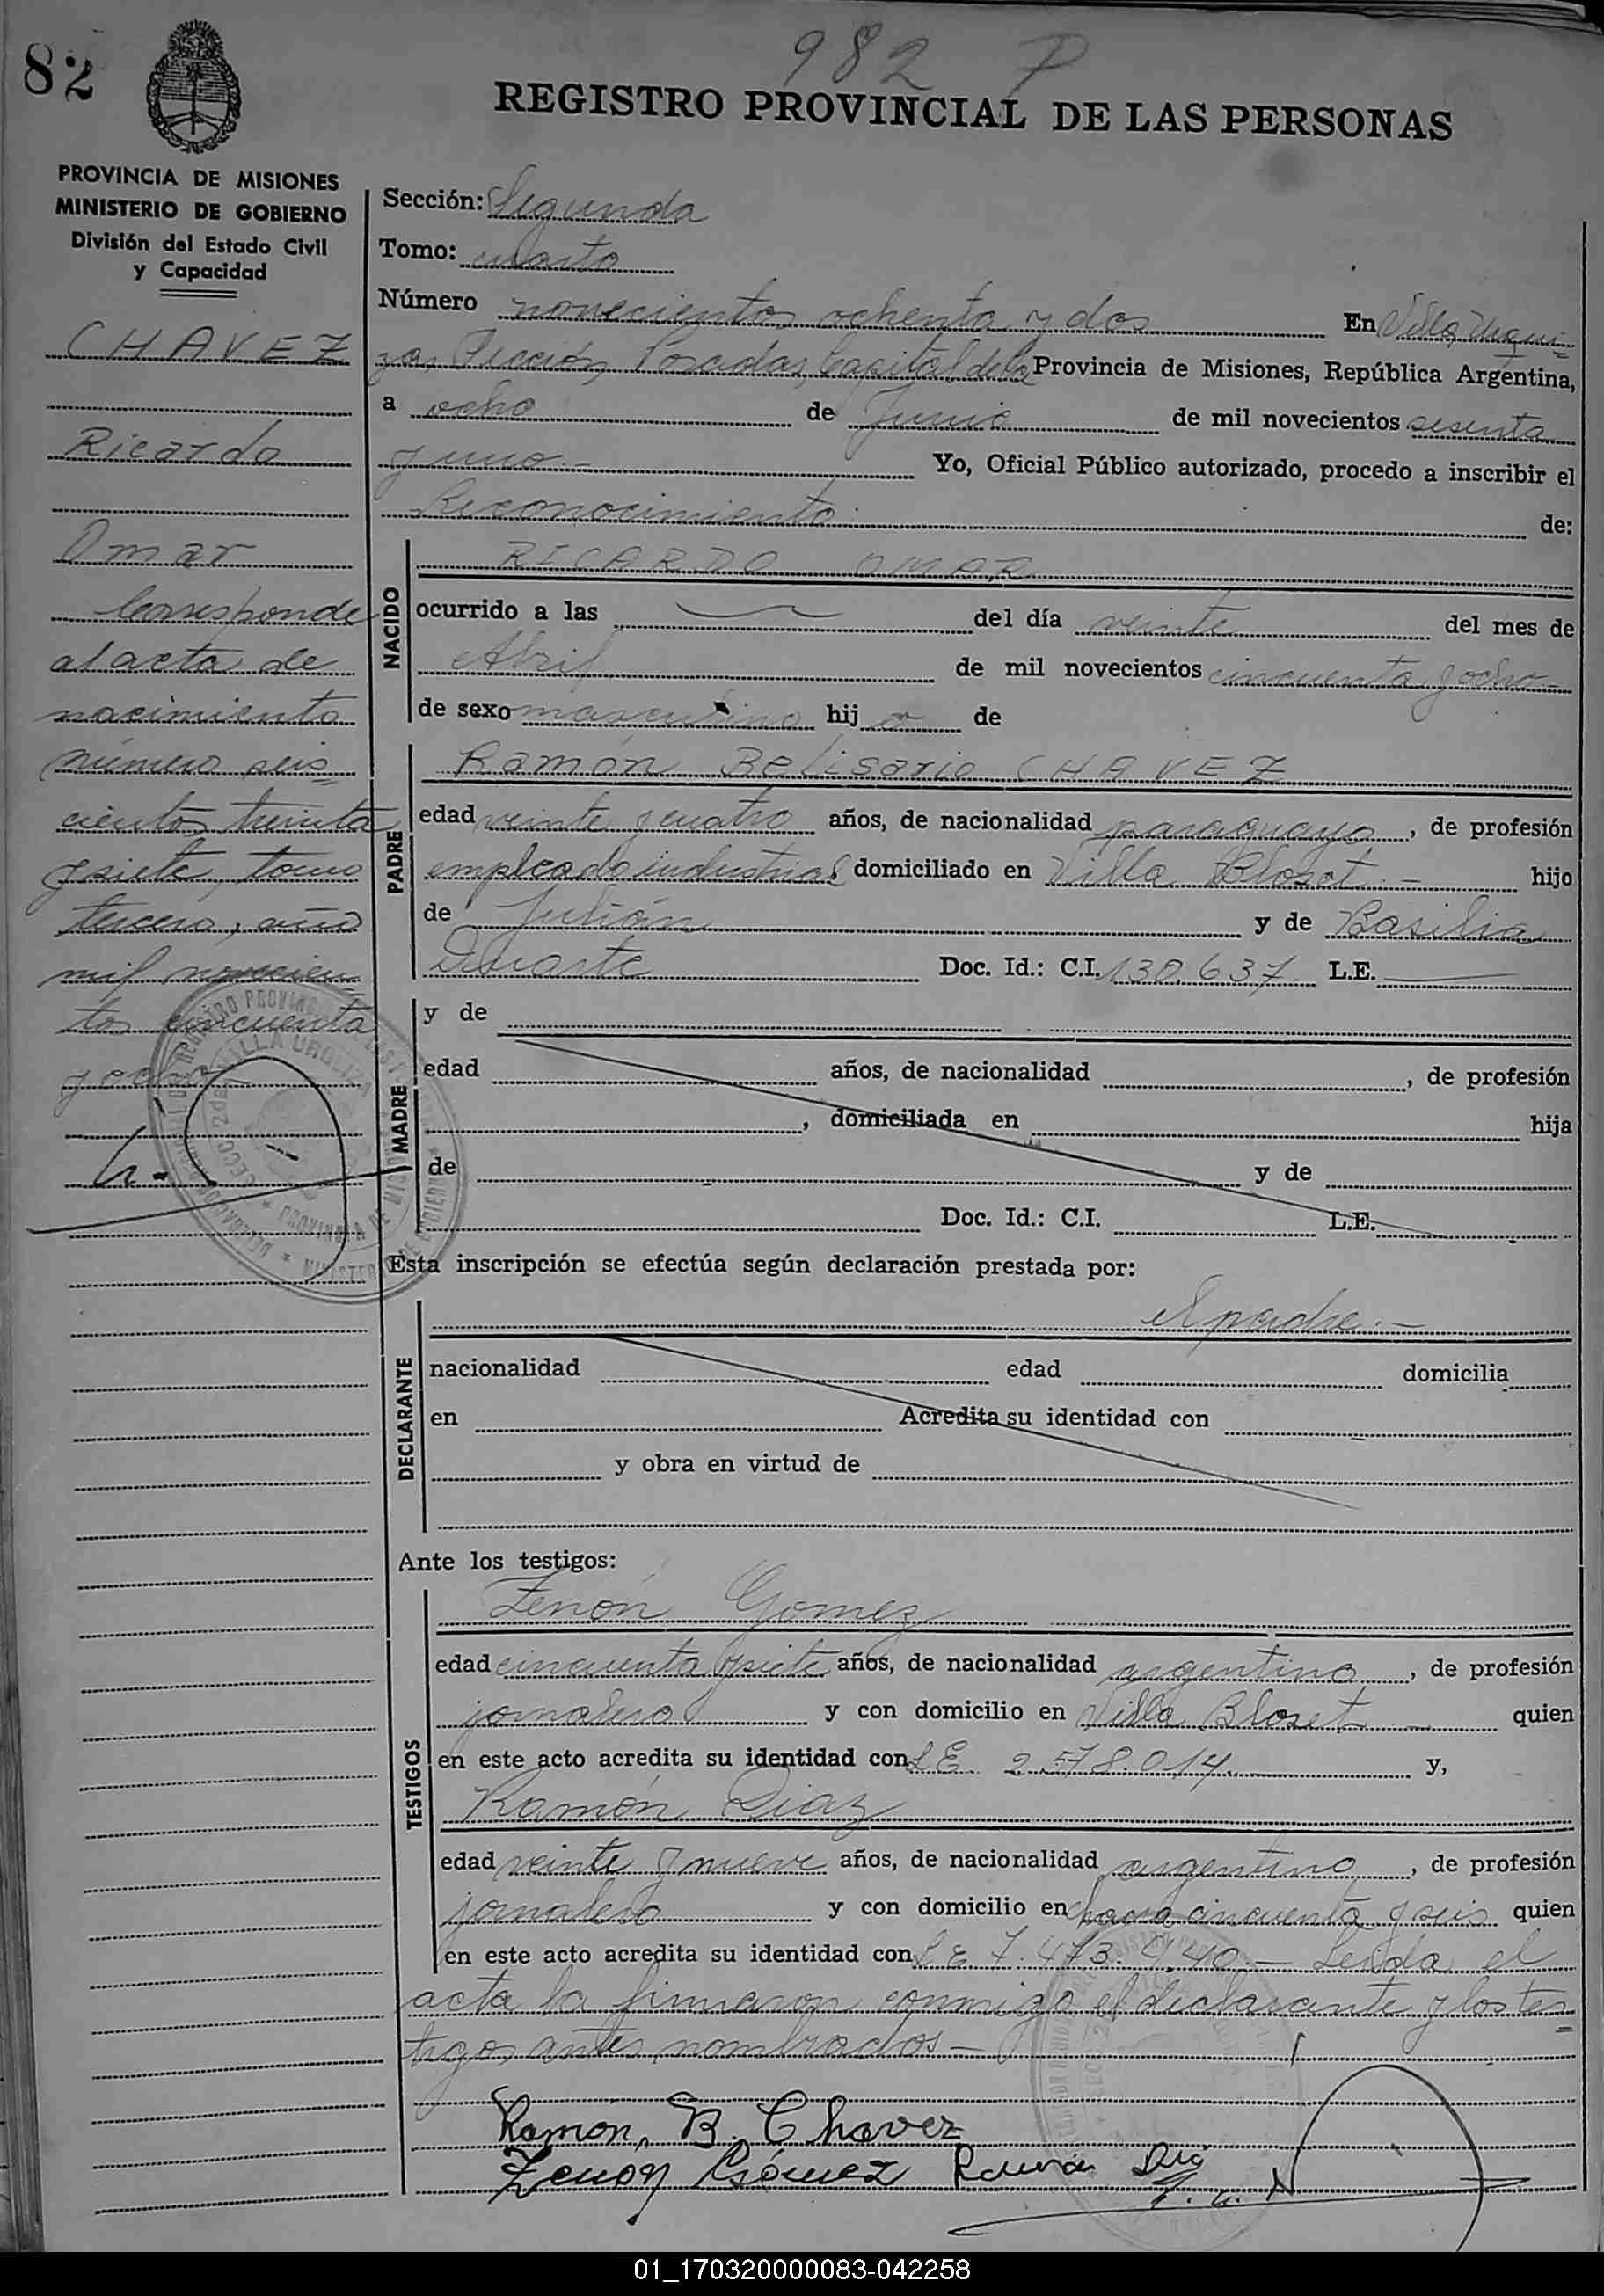 982 P
82
REGISTRO PROVINCIAL DE LAS PERSONAS
PROVINCIA DE MISIONES
MINISTERIO DE GOBIERNO
División del Estado Civil
y Capacidad
CHAVEZ
Ricardo
Omar
Corresponde
al acta de
nacimiento
número seis
cientos treinta
y siete, tomo
tercero, año
mil novecien
tos cincuenta
y ocho
Sección: Segunda
Tomo: cuarto
Número novecientos ochenta y dos En Villa Urqui=
za, Sección, Posadas, Capital de la Provincia de Misiones, República Argentina,
a ocho de Junio de mil novecientos sesenta
y uno.- Yo, Oficial Público autorizado, procedo a inscribir el
Reconocimiento de:
NACIDO
RICARDO OMAR
ocurrido a las del día veinte del mes de
Abril de mil novecientos cincuenta y ocho-
de sexo masculino hijo de
PADRE
Ramón Belisario CHAVEZ
edad veinte y cuatro años, de nacionalidad paraguaya, de profesión
empleado industrial domiciliado en Villa Bloset.- hijo
de Julián y de Basilia
Duarte Doc. Id.: C.I. 130.637 L.E.
MADRE
y de
edad años, de nacionalidad , de profesión
, domiciliada en hija
de y de
Doc. Id.: C.I. L.E.
Esta inscripción se efectúa según declaración prestada por:
DECLARANTE
el padre.-
nacionalidad edad domicilia
en Acredita su identidad con
y obra en virtud de
Ante los testigos:
TESTIGOS
Zenón Gomez
edad cincuenta y siete años, de nacionalidad argentino, de profesión
jornalero y con domicilio en Villa Bloset quien
en este acto acredita su identidad con L E 2.578.014. y,
Ramón Diaz
edad veinte y nueve años, de nacionalidad argentino, de profesión
jornalero y con domicilio en chacra cincuenta y seis quien
en este acto acredita su identidad con L E 7.473.440.- Leída el
acta la firmaron conmigo el declarante y los tes=
tigos antes nombrados-
Ramón B. Chavez
Zenon Gómez Ramón Diaz
01_170320000083-042258